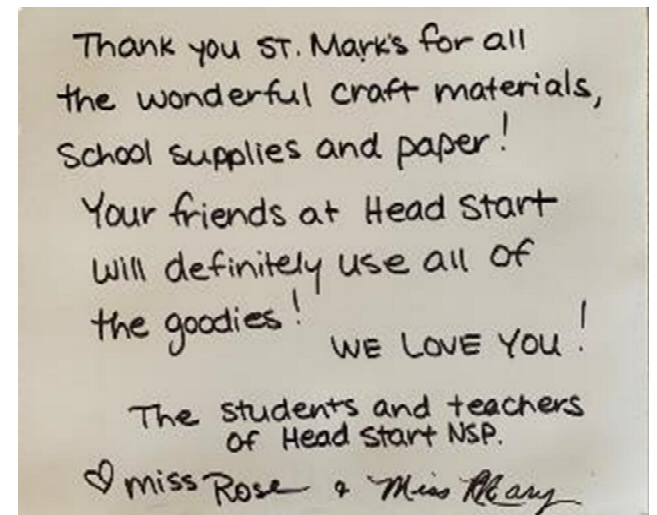 Thank you ST. Mark's for all
the wonderful craft materials,
School supplies and paper!
Your friends at Head Start
will definitely use all of
the goodies!
WE LOVE YOU!
The students and teachers
of Head Start NSP.
♡ miss Rose & Miss Mary